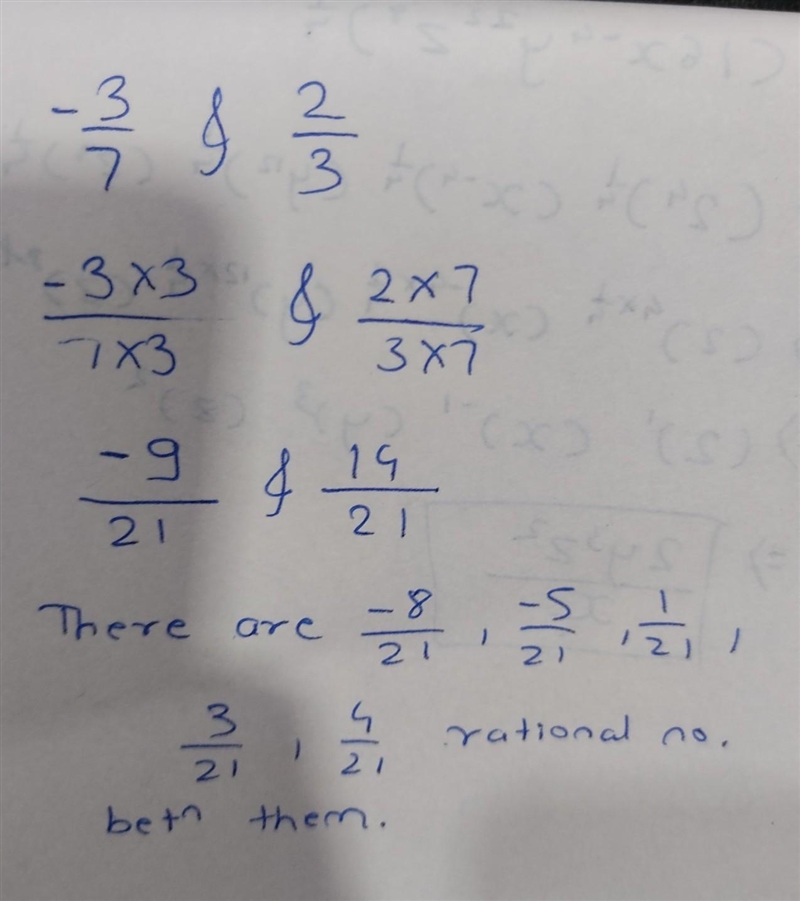 -3/7 & 2/3
-3×3/7×3 & 2×7/3×7
-9/21 & 14/21
There are -8/21, -5/21, 1/21,
3/21, 4/21 rational no.
betn them.